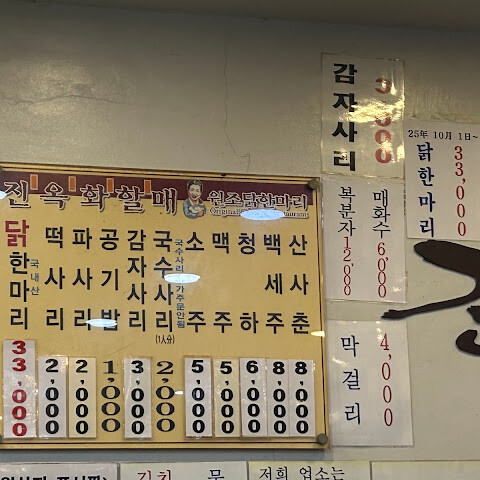 진옥화할매 원조닭한마리
Original
닭한마리 국내산 33,000
떡사리 2,000
파사리 2,000
공기밥 1,000
감자사리 3,000
국수사리 (1人分) 2,000
국수사리 추가주문안됨
소주 5,000
맥주 5,000
청하 6,000
백세주 8,000
산사춘 8,000
감자사리 3,000
25年 10月 1日~
닭한마리 33,000
매화수 6,000
복분자 12,000
막걸리 4,000
저희 업소는